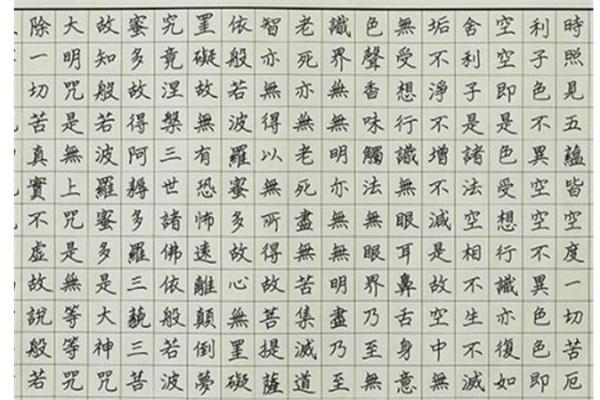 時照見五蘊皆空度一切苦厄
利子色不異空空不異色色即
空空即是色受想行識亦復如
舍利子是諸法空相不生不滅
垢不淨不增不減是故空中無
無受想行識無眼耳鼻舌身意
色聲香味觸法無眼界乃至無
識界無無明亦無無明盡乃至
老死亦無老死盡無苦集滅道
智亦無得以無所得故菩提薩
依般若波羅蜜多故心無罣礙
罣礙故無有恐怖遠離顛倒夢
究竟涅槃三世諸佛依般若波
蜜多故得阿耨多羅三藐三菩
故知般若波羅蜜多是大神咒
大明咒是無上咒是無等等咒
除一切苦真實不虛故說般若